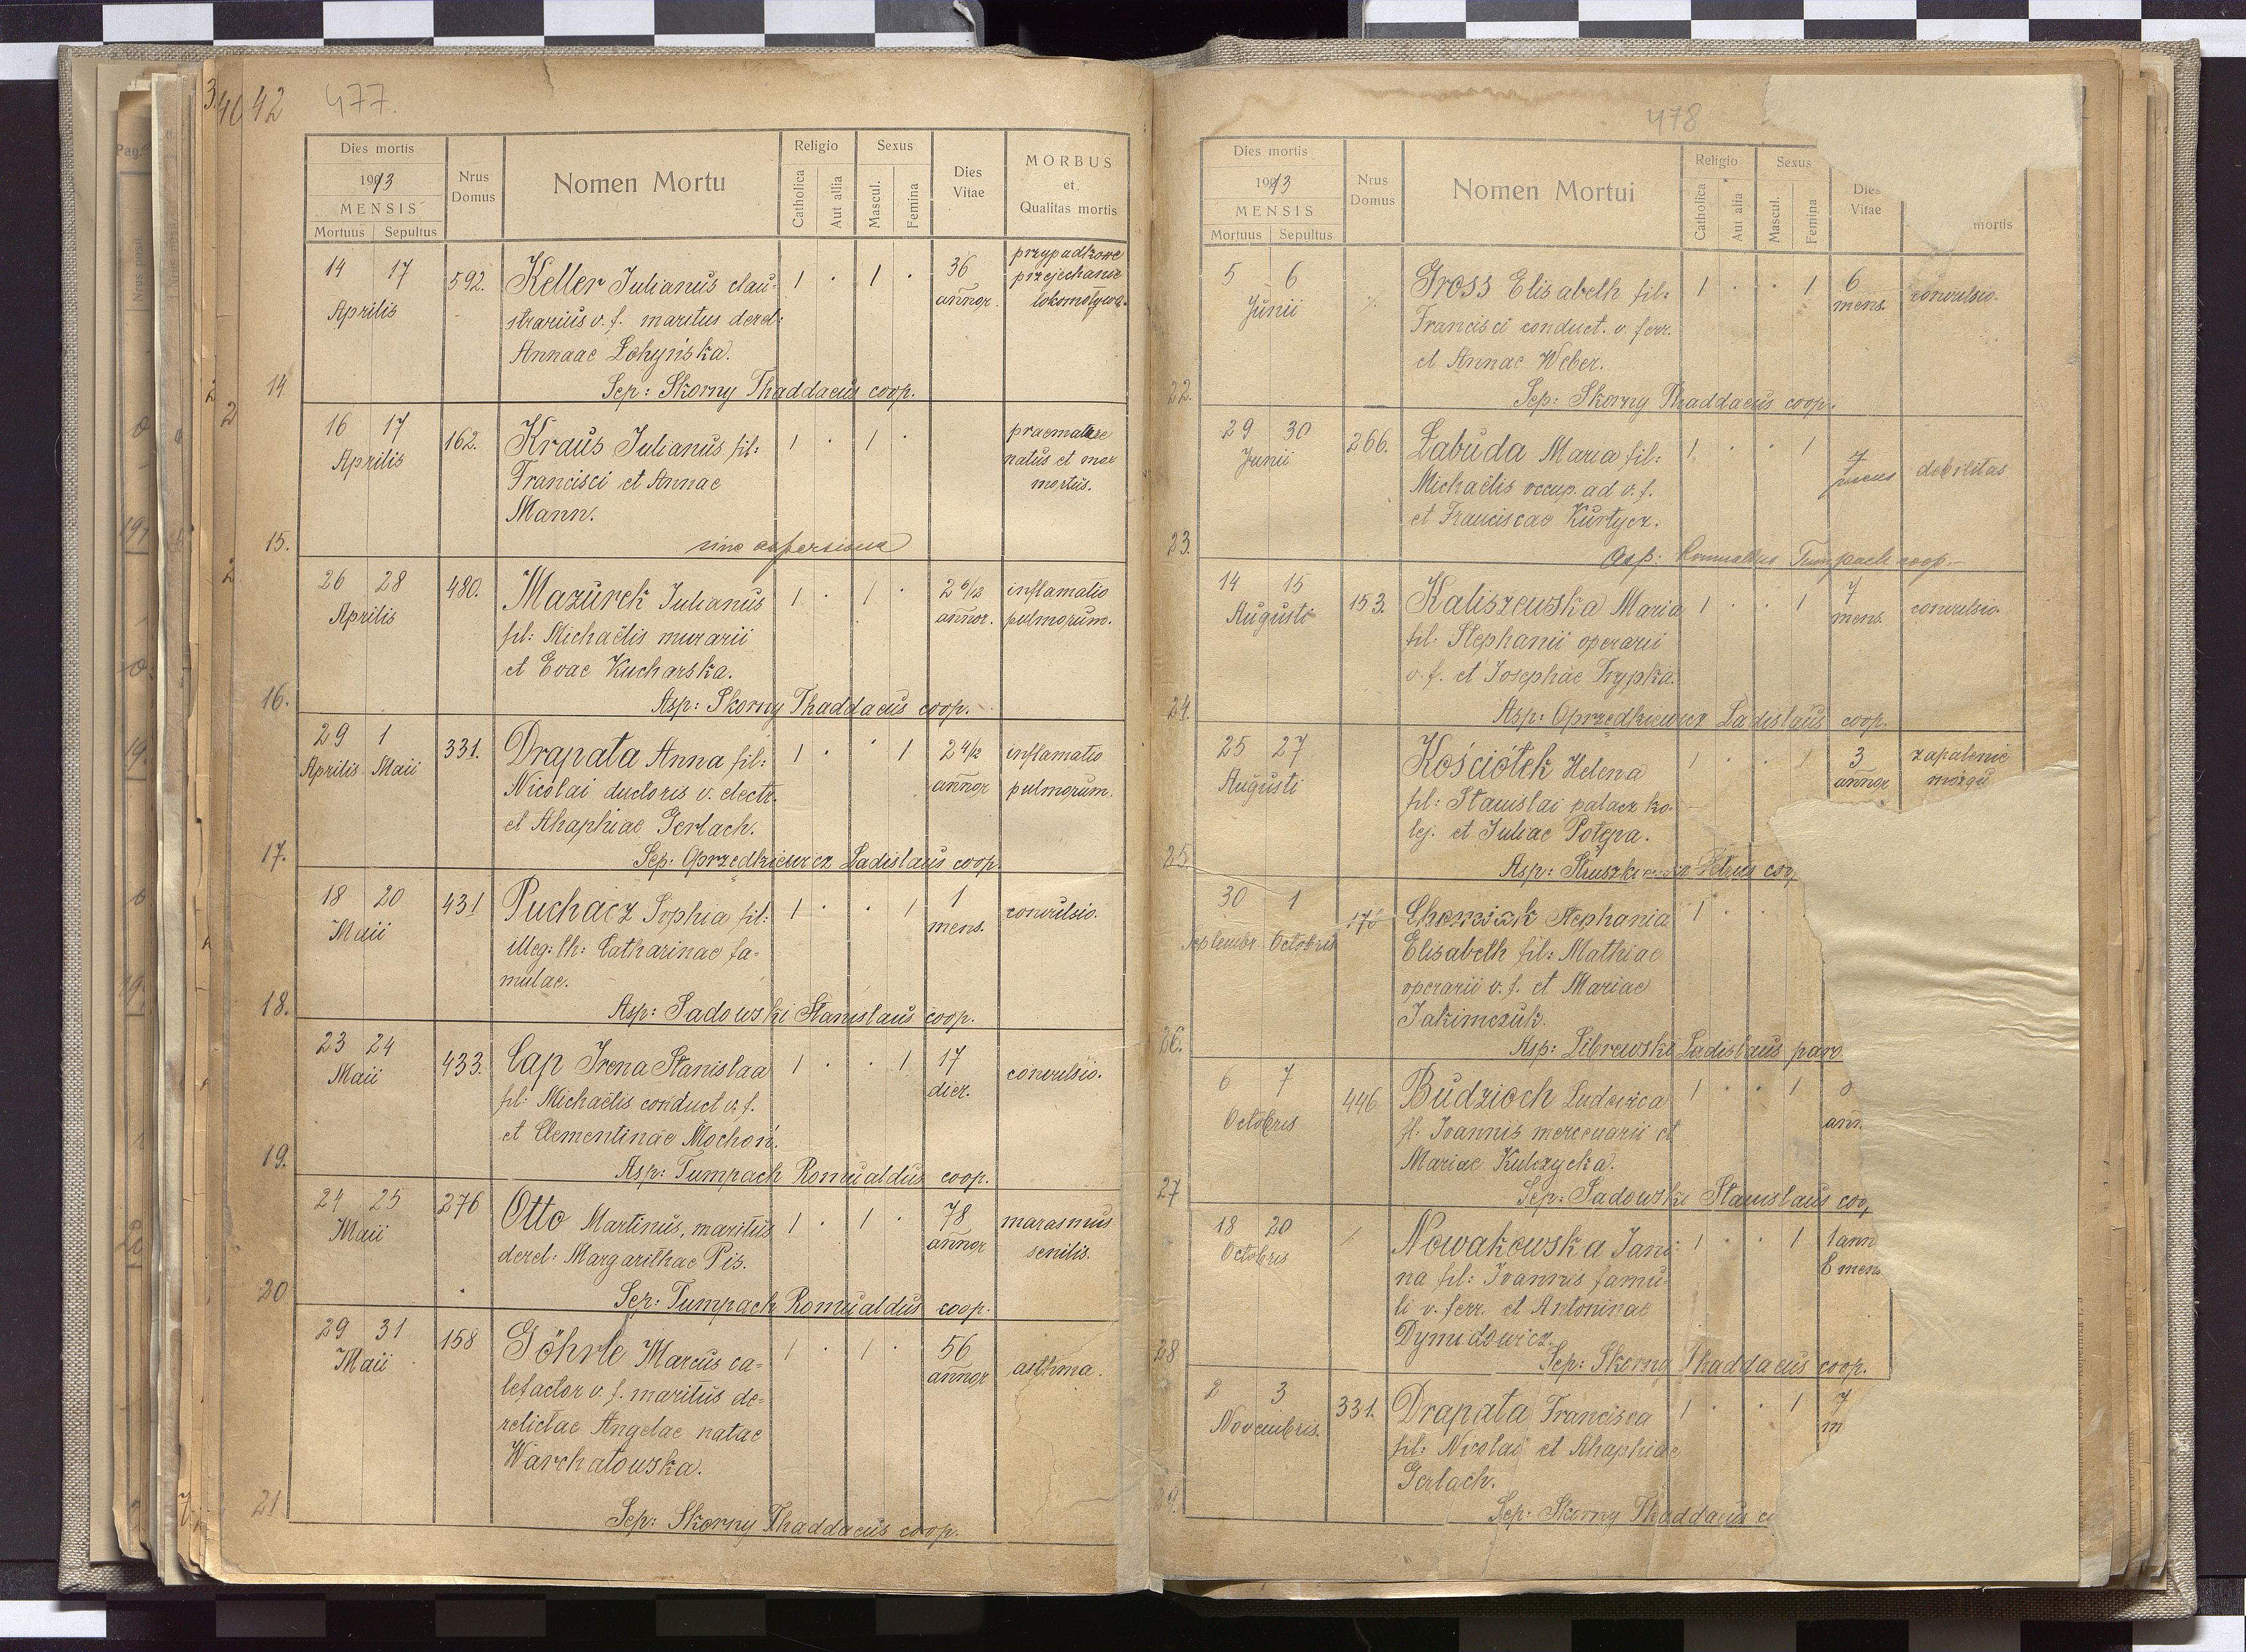 42
477.
Dies mortis
1913
MENSIS
Mortuus Sepultus
Nrus Domus
Nomen Mortu
Religio
Catholica
Aut allia
Sexus
Mascul.
Femina
Dies Vitae
MORBUS
et
Qualitas mortis
14 17 592. Keller Julianus clau- 1 . 1 . 36 przypadkowe
Aprilis strarius v. f. maritus derel: annor. przejechanie
Annae Łohyńska. lokomotywą.
14 Sep: Skorny Thaddaeus coop.
16 17 162. Kraus Julianus fil: 1 . 1 . praemature
Aprilis Francisci et Annae natus et mox
Mann. mortus.
15. sine aspersione
26 28 480. Mazurek Julianus 1 . 1 . 2 6/12 inflamatio
Aprilis fil: Michaëlis murarii annor. pulmorum.
et Evae Kucharska.
16. Asp: Skorny Thaddaeus coop.
29 1 331. Drapata Anna fil: 1 . . 1 2 4/12 inflamatio
Aprilis Maii Nicolai ductoris v. electr. annor pulmorum.
et Ahaphiae Gerlach.
17. Sep: Oprzedkiewicz Ladislaus coop.
18 20 431 Puchacz Sophia fil: 1 . . 1 1 convulsio.
Maii illeg: th: Catharinae fa- mens.
mulae.
18. Asp: Sadowski Stanislaus coop.
23 24 433. Cap Irena Stanislaa 1 . . 1 17 convulsio.
Maii fil: Michaëlis conduct v. f. dier.
et Clementinae Mochoń.
19. Asp: Tumpach Romualdus coop.
24 25 276 Otto Martinus, maritus 1 . 1 . 78 marasmus
Maii derel: Margarithae Pis. annor senilis.
20 Sep: Tumpach Romualdus coop.
29 31 158 Göhrle Marcus ca- 1 . 1 . 56 asthma.
Maii lefactor v. f. maritus de- annor
relictae Angelae natae
Warchatowska.
21 Sep: Skorny Thaddaeus coop.
478
Dies mortis
1913
MENSIS
Mortuus Sepultus
Nrus Domus
Nomen Mortui
Religio
Catholica
Aut alia
Sexus
Mascul.
Femina
Dies Vitae
mortis
5 6 Gross Elisabeth fil: 1 . . 1 6 convulsio.
Junii Francisci conduct. v. ferr. mens.
et Annae Weber.
22. Sep: Skorny Thaddaeus coop.
29 30 266. Łabuda Maria fil: 1 . . 1 7 debilitas
Junii Michaëlis occup. ad v. f.
et Franciscae Kurtycz.
23. Asp: Romualdus Tumpach coop.
14 15 153. Kaliszewska Maria 1 . . 1 7 convulsio
Augusti fil: Stephanii operarii mens.
v. f. et Josephae Hrypka.
24. Asp: Oprzedkiewicz Ladislaus coop.
25 27 Kościótek Helena 1 . . 1 3 zapalenie
Augusti fil: Stanislai palacz ko- annor mózgu
lej. et Juliae Potępa.
25. Asp: Petrus
30 1 Chomiak Stephania 1 .
Septembr. Octobris Elisabeth fil: Mathiae
operarii v. f. et Mariae
Jakimczuk.
26. Asp: Librewski Ladislaus
6 7 446 Budzioch Ludovica 1 . . 1
Octobris fil: Ioannis mercenarii et ann.
Mariae Kulczycka.
27 Sep: Sadowski Stanislaus
18 20 Nowakowska Jani- 1 . . 1 1 ann
Octobris na fil: Ioannis famu- mens
li v. ferr. et Antoninae
Dymidowicz.
28 Sep: Skorny Thaddaeus coop.
2 3 331. Drapata Francisca 1 . . 1 7
Novembris. fil: Nicolai et Ahaphiae m
Gerlach.
29. Sep: Skorny Thaddaeus